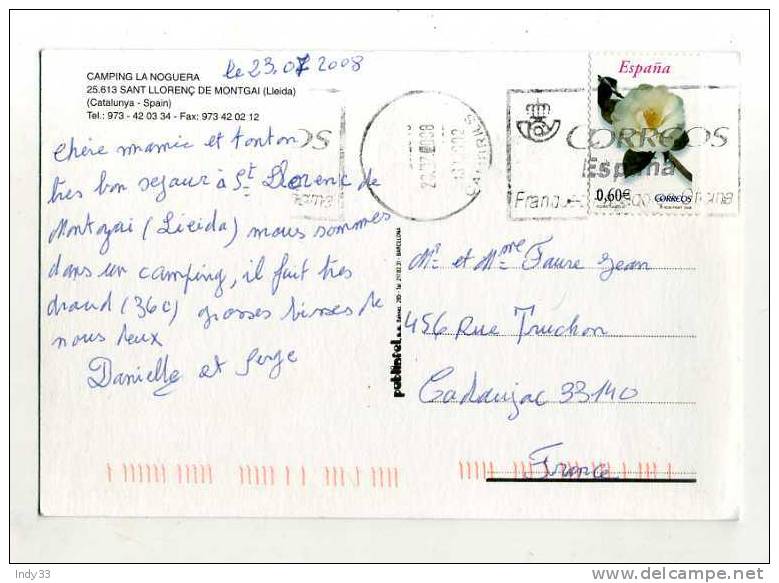 le 23.07 2008
CAMPING LA NOGUERA
25.613 SANT LLORENÇ DE MONTGAI (Lleida)
(Catalunya - Spain)
Tel.: 973 - 42 03 34 - Fax: 973 42 02 12
chère mamie et tonton
très bon sejour à St Llorenc de
Montgai (Lleida) nous sommes
dans un camping, il fait très
chaud (36c) grosses bisses de
nous deux
Danielle et Serge
publintel s.a.
España
0,60€ CORREOS
CORREOS
España
Mr et Mme Faure Jean
456 Rue Truchon
Cadaujac 33140
France
Indy33
www.delcampe.net